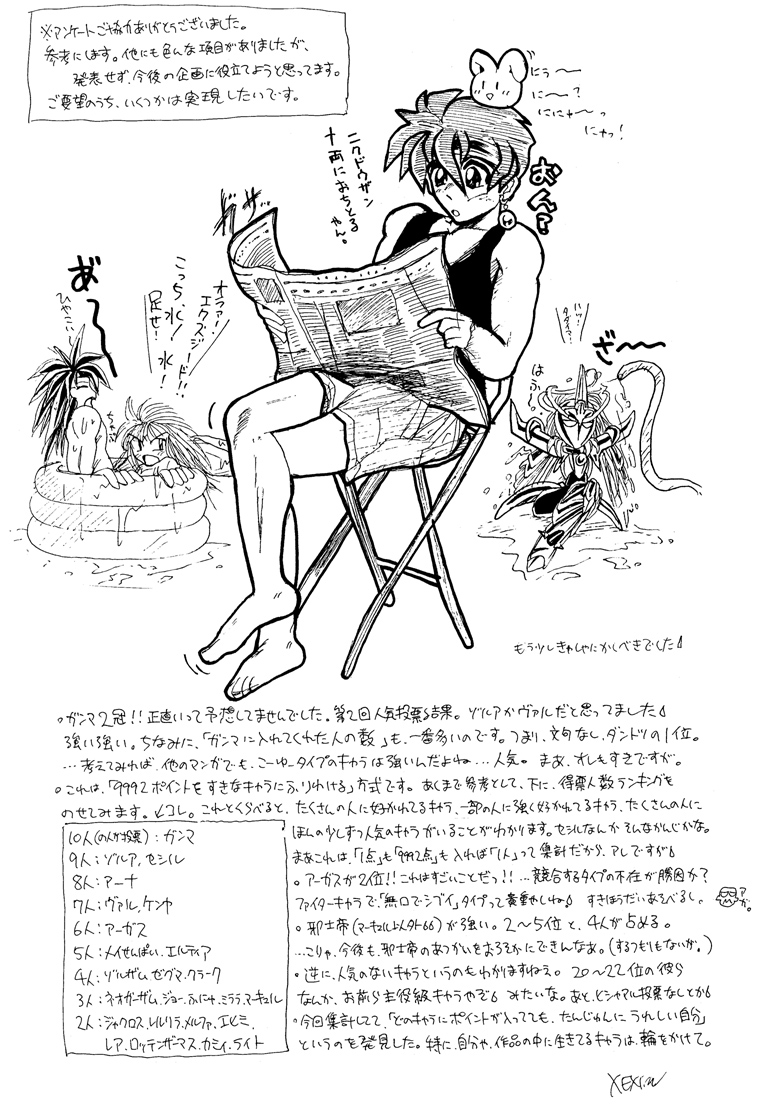 ※アンケートご協力ありがとうございました。
参考にします。他にも色んな項目がありましたが、
発表せず、今後の企画に役立てようと思ってます。
ご要望のうち、いくつかは実現したいです。
にぅ〜
に〜?
ににゃ〜っ
にゃっ!
おん?
ニクドウザン
十両におちとる
やん。
ガサッ
オラァ!
エクスジード!!
こっち、水!
足せ!水!
あ〜
ひやこい
ざ〜
はふ〜
もう少しきゃしゃにかくべきでした
○ガンマ2冠!!正直いって予想してませんでした。第2回人気投票結果。ゾルアかヴァルだと思ってました
強い強い。ちなみに、「ガンマに入れてくれた人の数」も、一番多いのです。つまり、文句なし、ダントツの1位。
…考えてみれば、他のマンガでも、こーゆータイプのキャラは強いんだよね…人気。まあ、オレもすきですが。
○これは、「9992ポイントをすきなキャラにふりわける」方式です。あくまで参考として、下に、得票人数ランキングを
のせてみます。↙コレ。これとくらべると、たくさんの人に好かれてるキャラ、一部の人に強く好かれてるキャラ、たくさんの人に
ほんの少しずつ人気のキャラがいることがわかります。セシルなんかそんなかんじかな。
まあこれは、「1点」も「9992点」も入れば「1人」って集計だから、アレですが
○アーガスが2位!!これはすごいことだっ!!…競合するタイプの不在が勝因か?
ファイターキャラで「無口でシブイ」タイプって貴重やしね すきほうだいあそべるし。
○邪士帝(マーキュルよりノタト66)が強い。2〜5位と、4人が占める。
…こりゃ、今後も、邪士帝のあつかいをおろそかにできんなあ。(するつもりもないが。)
○逆に、人気のないキャラというのもわかりますねえ。20〜22位の彼ら
なんか、お前ら主役級キャラやぞ みたいな。あと、ビシャアル投票なしとか
○今回集計してて、「どのキャラにポイントが入ってても、たんじゅんにうれしい自分」
というのを発見した。特に、自分や、作品の中に生きてるキャラは、輪をかけて。
10人(の人が投票):ガンマ
9人:ゾルア,セシル
8人:アーナ
7人:ヴァル,ケンヤ
6人:アーガス
5人:メイせんぱい,エルディア
4人:ゾルザム,ゼグマ,クラーク
3人:ネオガーザム,ジョー,ふにゃ,ミララ,マーキュル
2人:ジャクロス,レルリラ,メルファ,エヒミ,
レア,ロッテンザーマス,カミィ,ライト